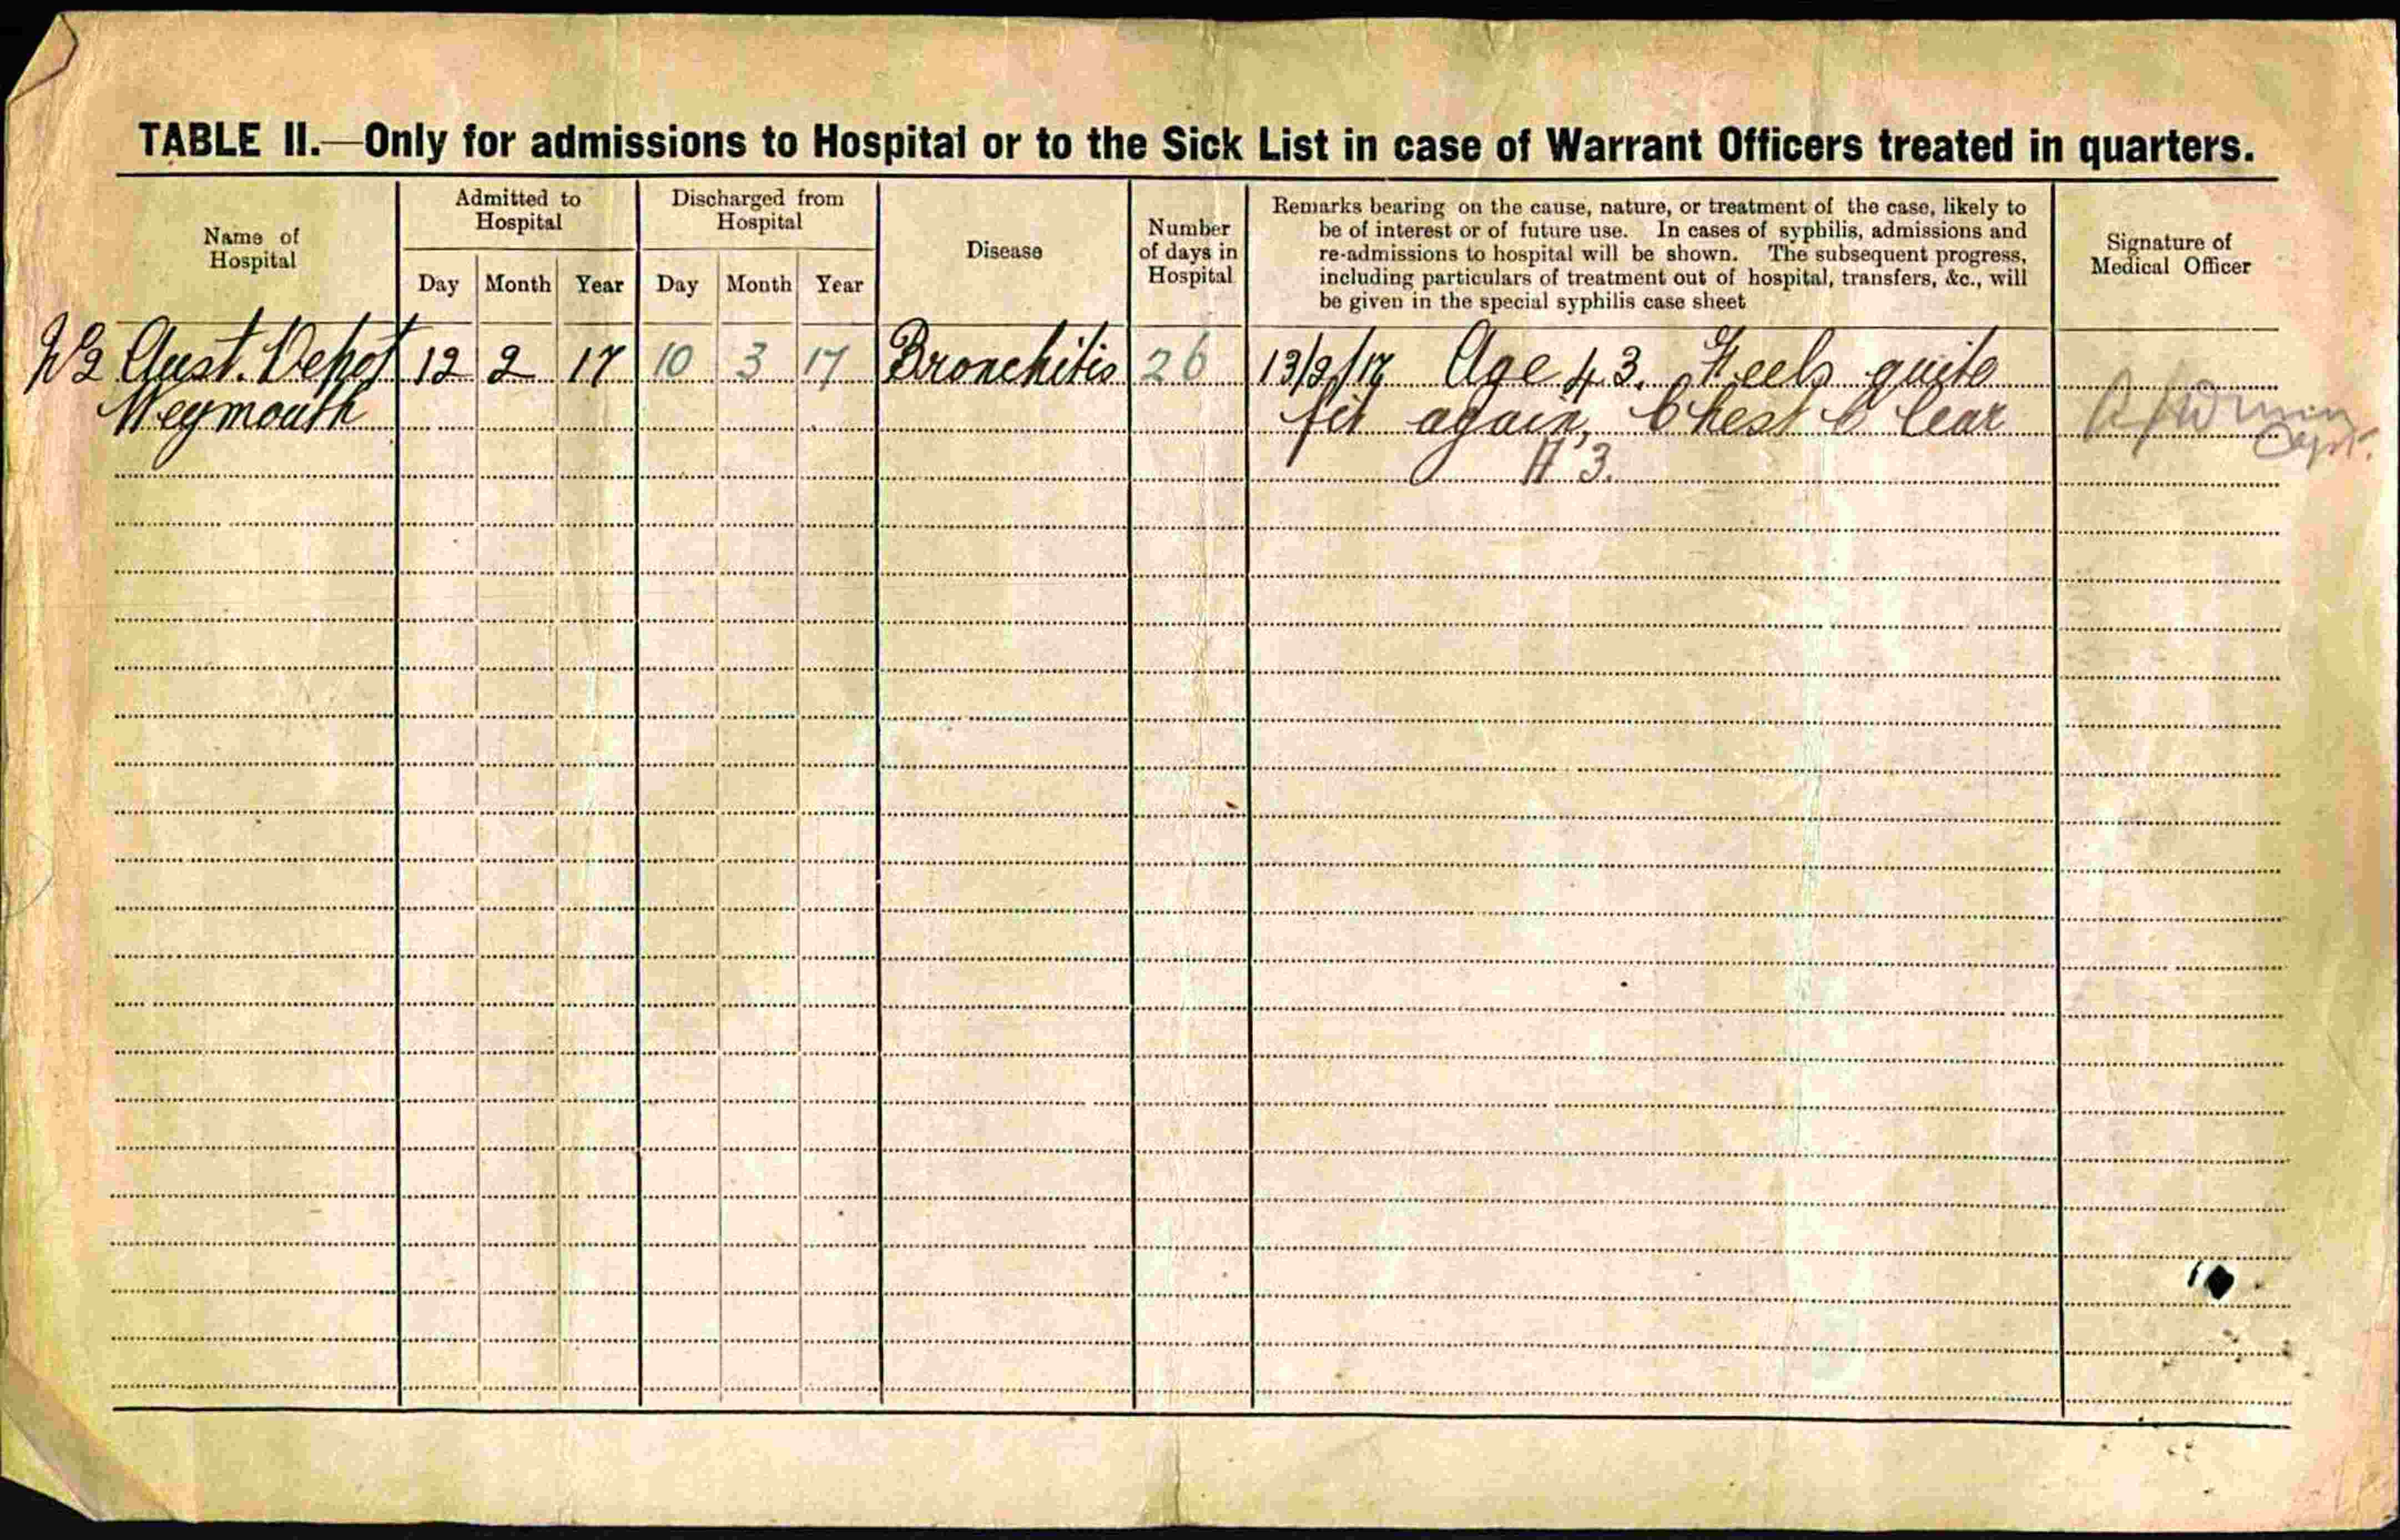 TABLE II.—Only for admissions to Hospital or to the Sick List in case of Warrant Officers treated in quarters.
Name of
Hospital
Admitted to
Hospital
Day Month Year
Discharged from
Hospital
Day Month Year
Disease
Number
of days in
Hospital
Remarks bearing on the cause, nature, or treatment of the case, likely to
be of interest or of future use. In cases of syphilis, admissions and
re-admissions to hospital will be shown. The subsequent progress,
including particulars of treatment out of hospital, transfers, &c., will
be given in the special syphilis case sheet
Signature of
Medical Officer
Nº2 Aust. Depot 12 2 17 10 3 17 Bronchitis 26 13/2/17 Age 43. Feels quite
Weymouth fit again, Chest Clear
A 3.
Capt.